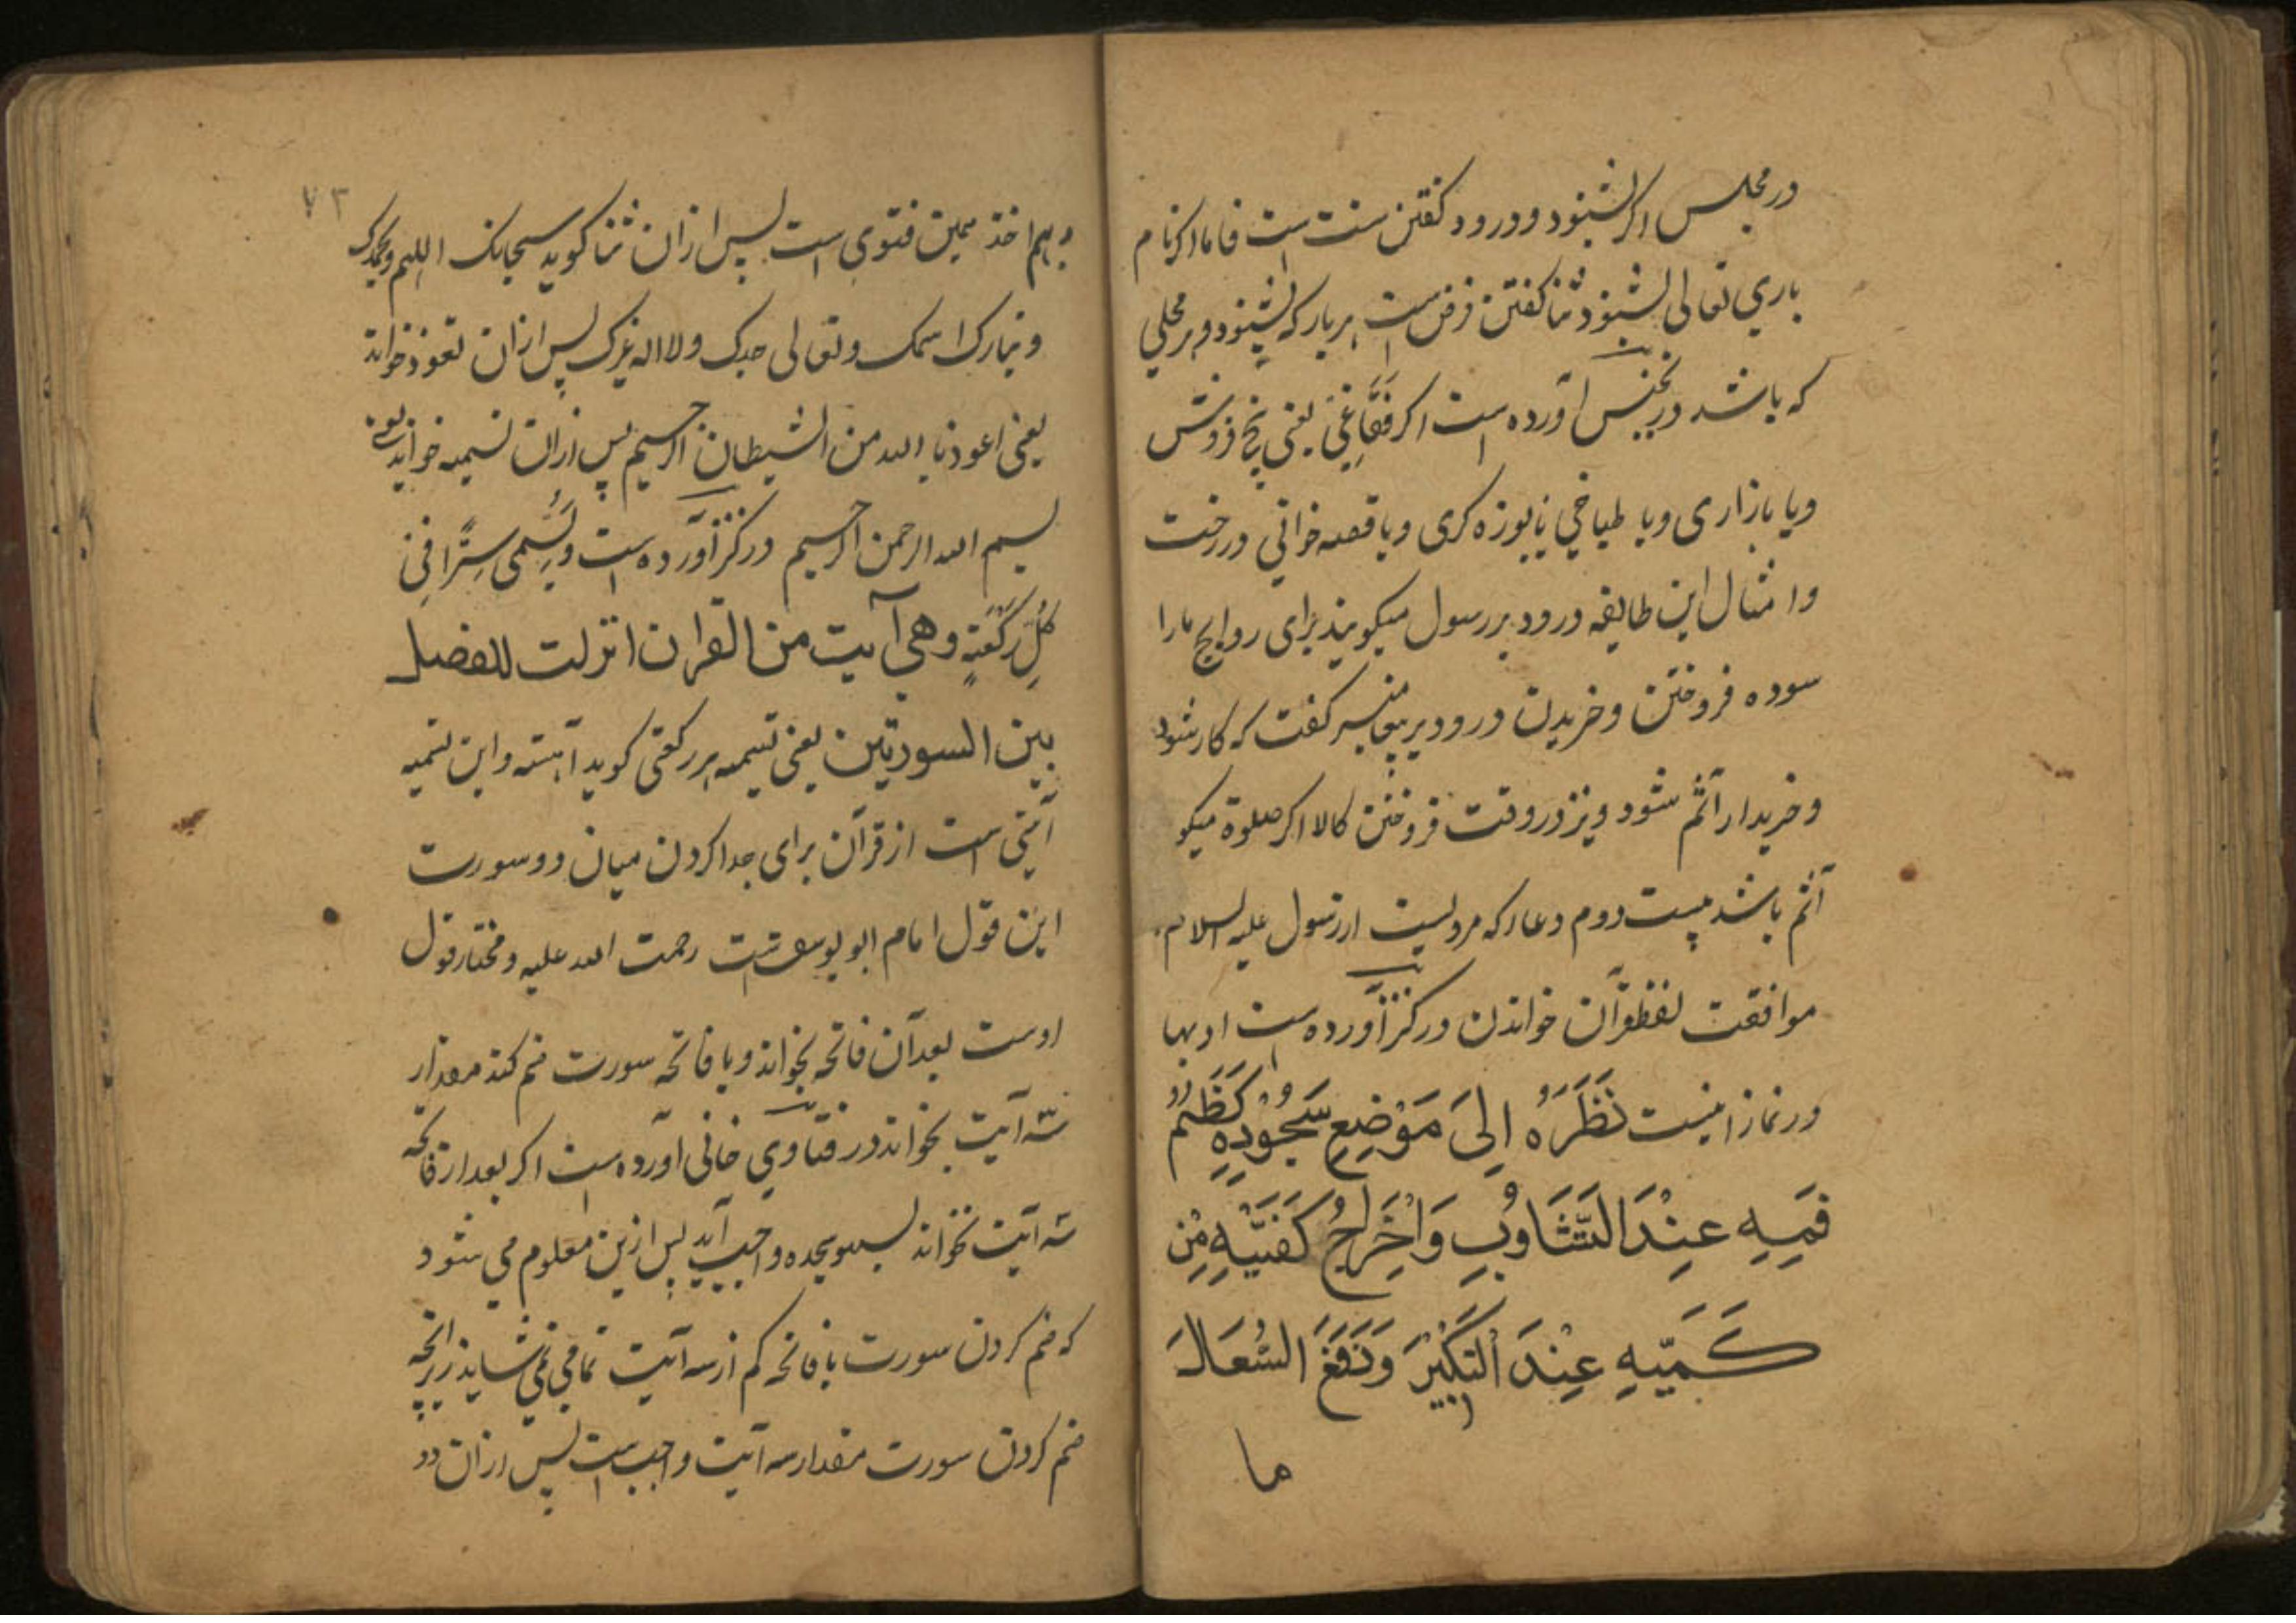 در مجلس اکر بشنود و درود کفتن سنت است فاما اکر نام
باری تعالی بشنود ثنا کفتن فرض است هر بار که بشنود در هر محلی
که باشد در تجنیس آورده است اکر فقاعی یعنی یخ فروش
ویا بازاری ویا طباخی یا بوزه کری ویا قصه خوانی
وامثال این طایفه درود بر رسول میکویند برای رواج مارا
سوده فروختن وخریدن درود بر پیغامبر کفت که کار شود
وخریدار آثم شود ونیز در وقت فروختن کالا اکر صلوة میکو
آثم باشد بیست دوم دعا که مرویست از رسول علیه السلام
موافقت لفظ قرآن خواندن در کنز آورده است ادبها
در نماز اینست نَظَرَهُ اِلیَ مَوْضِعِ سُجُوْدِهِ کَظْمُ
فَمِهِ عِنْدَ التَّثَاوُبِ وَاِخْرَاجُ کَفَّیْهِ مِنْ
کَمَّیْهِ عِنْدَ التَّکْبِیْرِ وَدَفَعَ السُّعَالَ
ما
۷۳
وبهم اخذ همین فتوی است پس ازان ثنا کوید سبحانک اللهم وبحمدک
وتبارک اسمک وتعالی جدک ولا اله غیرک پس ازان تعوذ خواند
یعنی اعوذ بالله من الشیطان الرجیم پس ازان تسمیه خواند یعنی
بسم الله الرحمن الرحیم در کنز آورده است وَیُسَمِّی سِرًّا فِی
کُلِّ رَکْعَتٍ وهی آیت من القران انزلت للفصل
بین السورتین یعنی تسمیه هر رکعتی کوید آهسته واین تسمیه
آیتی است از قرآن برای جدا کردن میان دو سورت
این قول امام ابو یوسف است رحمت الله علیه ومختار قول
اوست بعد آن فاتحه بخواند وبا فاتحه سورت ضم کند مقدار
سه آیت بخواند در فتاوی خانی آورده است اکر بعد از فاتحه
سه آیت نخواند بسهو سجده واجب آید پس ازین معلوم می شود
که ضم کردن سورت با فاتحه کم از سه آیت تمامی نمی شاید زیرانچه
ضم کردن سورت مقدار سه آیت واجب است پس ازان دو